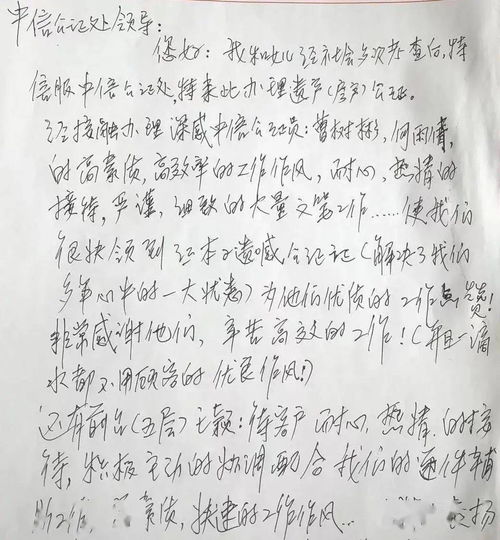 中信公证处领导：
您好：我和女儿经社会多次考查后，特
信服中信公证处，特来此办理遗产（房产）公证。
经接触办理深感中信公证员：曹树彬，何雨倩，
的高素质，高效率的工作作风，耐心，热情的
接待，严谨，细致的大量文笔工作……使我们
很快领到红本遗嘱公证证（解决了我们
多年心中的一大忧患）为他们优质的工作点赞！
非常感谢他们，辛苦高效的工作！（并且一滴
水都不用顾客的优良作风！）
还有前台（五层）王颖：待客户耐心，热情，的接
待，积极主动的协调配合我们的
工作 素质，快速的工作作风… 扬